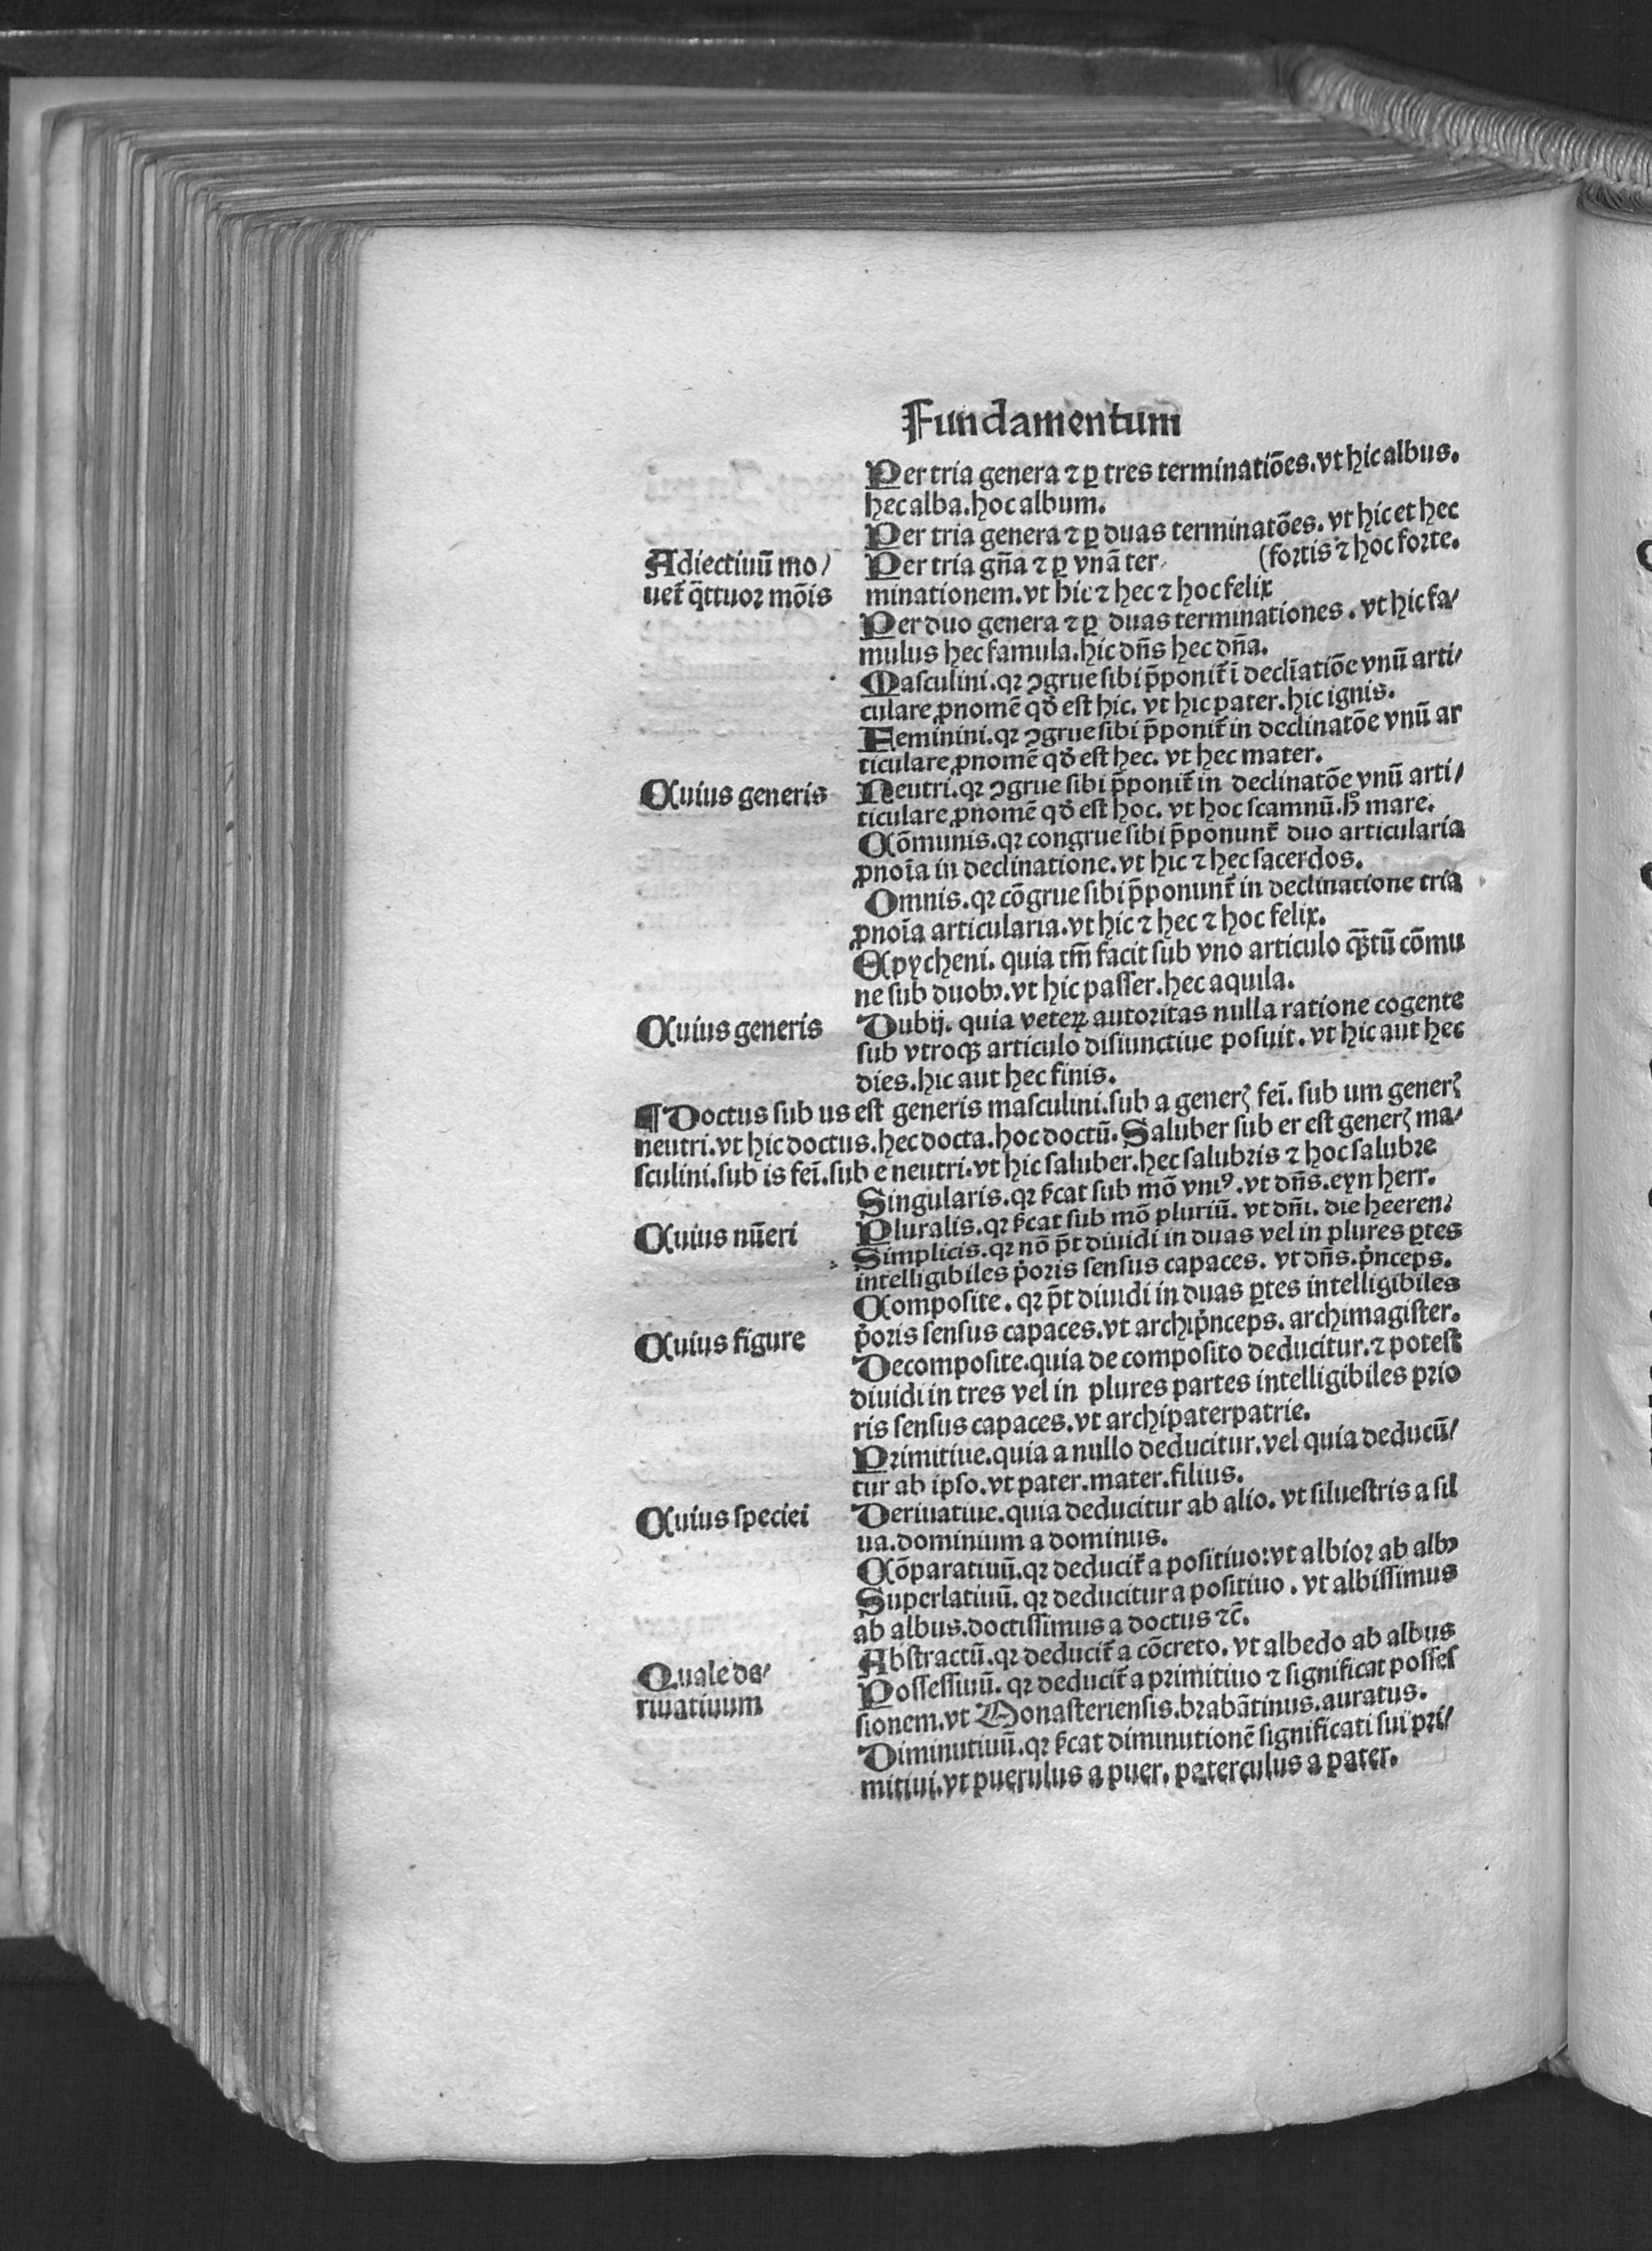 Fundamentum
Per tria genera ⁊ ꝑ tres terminatiōes. vt hic albus.
hec alba. hoc album.
Per tria genera ⁊ ꝑ duas terminatōes. vt hic et hec
(fortis ⁊ hoc forte.
Adiectiuū mo/
uet᷑ q̄ttuor mōis
Per tria gn̄a ⁊ ꝑ vnā ter/
minationem. vt hic ⁊ hec ⁊ hoc felix
Per duo genera ⁊ ꝑ duas terminationes. vt hic fa/
mulus hec famula. hic dn̄s hec dn̄a.
Masculini. qꝛ ꝯgrue sibi p̄ponit᷑ ī declīatiōe vnū arti/
culare ꝓnomē qd̓ est hic. vt hic pater. hic ignis.
Feminini. qꝛ ꝯgrue sibi p̄ponit᷑ in declinatōe vnū ar
ticulare ꝓnomē qd̓ est hec. vt hec mater.
Cuius generis
Neutri. qꝛ ꝯgrue sibi p̄ponit᷑ in declinatōe vnū arti/
ticulare ꝓnomē qd̓ est hoc. vt hoc scamnū. h̊ mare.
Cōmunis. qꝛ congrue sibi p̄ponunt᷑ duo articularia
ꝓnoīa in declinatione. vt hic ⁊ hec sacerdos.
Omnis. qꝛ cōgrue sibi p̄ponunt᷑ in declinatione tria
ꝓnoīa articularia. vt hic ⁊ hec ⁊ hoc felix.
Epycheni. quia tm̄ facit sub vno articulo qꝫ̄tū cōmu
ne sub duobꝰ. vt hic passer. hec aquila.
Cuius generis
Dubij. quia veteꝝ autoritas nulla ratione cogente
sub vtroqꝫ articulo disiunctiue posuit. vt hic aut hec
dies. hic aut hec finis.
¶ Doctus sub us est generis masculini. sub a generꝭ feī. sub um generꝭ
neutri. vt hic doctus. hec docta. hoc doctū. Saluber sub er est generꝭ ma/
sculini. sub is feī. sub e neutri. vt hic saluber. hec salubris ⁊ hoc salubre
Singularis. qꝛ ẜcat sub mō vniꝰ. vt dn̄s. eyn herr.
Cuius nūeri
Pluralis. qꝛ ẜcat sub mō pluriū. vt dn̄i. die heeren.
Simplicis. qꝛ nō p̄t diuidi in duas vel in plures ꝑtes
intelligibiles p̓oris sensus capaces. vt dn̄s. p̓nceps.
Composite. qꝛ p̄t diuidi in duas ꝑtes intelligibiles
Cuius figure
p̓oris sensus capaces. vt archip̓nceps. archimagister.
Decomposite. quia de composito deducitur. ⁊ potest
diuidi in tres vel in plures partes intelligibiles prio
ris sensus capaces. vt archipaterpatrie.
Primitiue. quia a nullo deducitur. vel quia deducū/
tur ab ipso. vt pater. mater. filius.
Cuius speciei
Deriuatiue. quia deducitur ab alio. vt siluestris a sil
ua. dominium a dominus.
Cōparatiuū. qꝛ deducit᷑ a positiuo: vt albior ab albꝰ
Superlatiuū. qꝛ deducitur a positiuo. vt albissimus
ab albus. doctissimus a doctus ⁊c̄.
Abstractū. qꝛ deducit᷑ a cōcreto. vt albedo ab albus
Quale de/
riuatiuum
Possessiuū. qꝛ deducit᷑ a primitiuo ⁊ significat posses
sionem. vt Monasteriensis. brabātinus. auratus.
Diminutiuū. qꝛ ẜcat diminutionē significati sui pri/
mitiui. vt puerulus a puer. paterculus a pater.